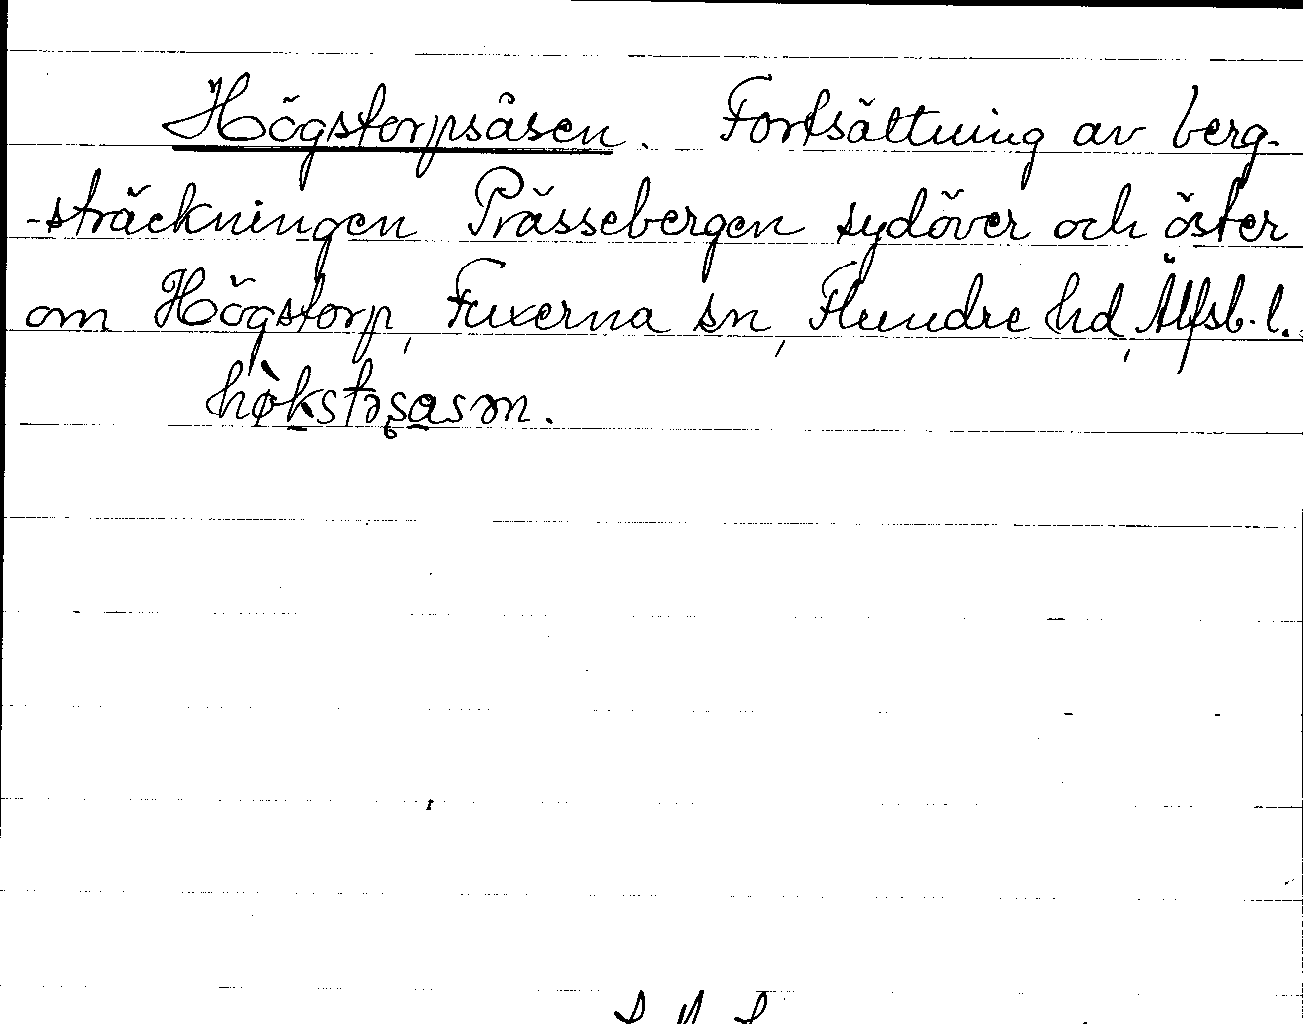 Högstorpsåsen. Fortsättning av berg-
-sträckningen Prässebergen sydöver och öster
om Högstorp, Fuxerna sn, Flundre hd, Älfsb. l.
hø̀kstɔʂɑsən.